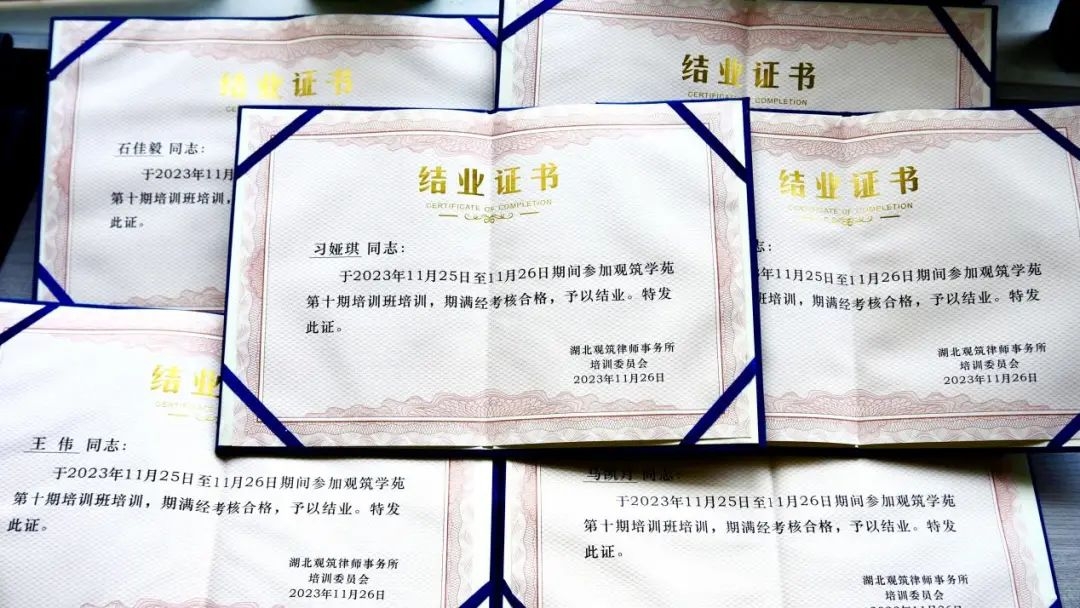 结业证书
石佳毅 同志：
于2023年11月
第十期培训班培训，
此证。
结业证书
CERTIFICATE OF COMPLETION
结业证书
CERTIFICATE OF COMPLETION
习娅琪 同志：
于2023年11月25日至11月26日期间参加观筑学苑
第十期培训班培训，期满经考核合格，予以结业。特发
此证。
湖北观筑律师事务所
培训委员会
2023年11月26日
结业证书
CERTIFICATE OF COMPLETION
志：
年11月25日至11月26日期间参加观筑学苑
班培训，期满经考核合格，予以结业。特发
湖北观筑律师事务所
培训委员会
2023年11月26日
结业
王 伟 同志：
于2023年11月25日至11月26日期间参加观筑学苑
第十期培训班培训，期满经考核合格，予以结业。特发
此证。
湖北观筑律师事务所
培训委员会
2023年11月26日
同志：
于2023年11月25日至11月26日期间参加观筑学苑
第十期培训班培训，期满经考核合格，予以结业。特发
此证。
湖北观筑律师事务所
培训委员会